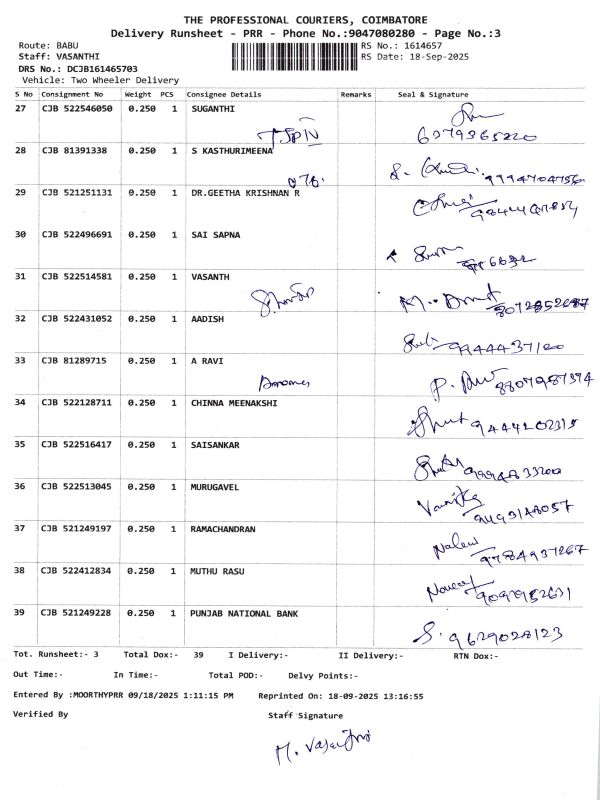 THE PROFESSIONAL COURIERS, COIMBATORE
Delivery Runsheet - PRR - Phone No.:9047080280 - Page No.:3
Route: BABU RS No.: 1614657
Staff: VASANTHI RS Date: 18-Sep-2025
DRS No.: DCJB161465703
Vehicle: Two Wheeler Delivery
S No Consignment No Weight PCS Consignee Details Remarks Seal & Signature
27 CJB 522546050 0.250 1 SUGANTHI
6379365220
28 CJB 81391338 0.250 1 S KASTHURIMEENA
9994704756
29 CJB 521251131 0.250 1 DR.GEETHA KRISHNAN R
30 CJB 522496691 0.250 1 SAI SAPNA
31 CJB 522514581 0.250 1 VASANTH
32 CJB 522431052 0.250 1 AADISH
9444437120
33 CJB 81289715 0.250 1 A RAVI
8807987374
34 CJB 522128711 0.250 1 CHINNA MEENAKSHI
9444202315
35 CJB 522516417 0.250 1 SAISANKAR
36 CJB 522513045 0.250 1 MURUGAVEL
37 CJB 521249197 0.250 1 RAMACHANDRAN
9784937267
38 CJB 522412834 0.250 1 MUTHU RASU
39 CJB 521249228 0.250 1 PUNJAB NATIONAL BANK
S. 9629028123
Tot. Runsheet:- 3 Total Dox:- 39 I Delivery:- II Delivery:- RTN Dox:-
Out Time:- In Time:- Total POD:- Delvy Points:-
Entered By :MOORTHYPRR 09/18/2025 1:11:15 PM Reprinted On: 18-09-2025 13:16:55
Verified By Staff Signature